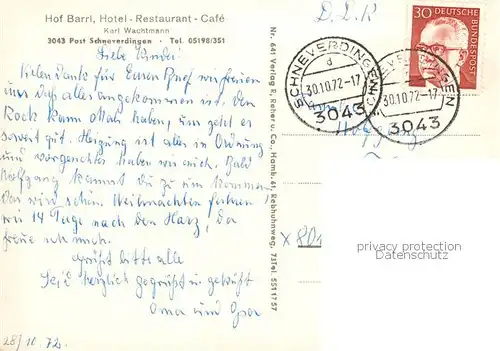 Hof Barrl, Hotel-Restaurant-Café
Karl Wachtmann
3043 Post Schneverdingen • Tel. 05198/351
Liebe Kinder!
Vielen Dank für Euren Brief wir freuen
uns daß alles angekommen ist. Den
Rock kann Mah haben, uns geht es
soweit gut. Heizung ist alles in Ordnung
und vorgestern haben wir
Wolfgang kannst Du zu uns kommen
Das wird schön. Weihnachten fahren
wir 14 Tage nach dem Harz, Da
freue ich mich.
Grüßt bitte alle
Seid herzlich gegrüßt u geküßt
Oma und Opa
28/10. 72.
Nr. 641 Verlag R. Reher u. Co., Hamb. 61, Rebhuhnweg, 73 Tel. 551 17 57
30
DEUTSCHE BUNDESPOST
SCHNEVERDINGEN
d
30.10.72-17
3043
SCHNEVERDINGEN
30.10.72-17
3043
privacy protection
watermark